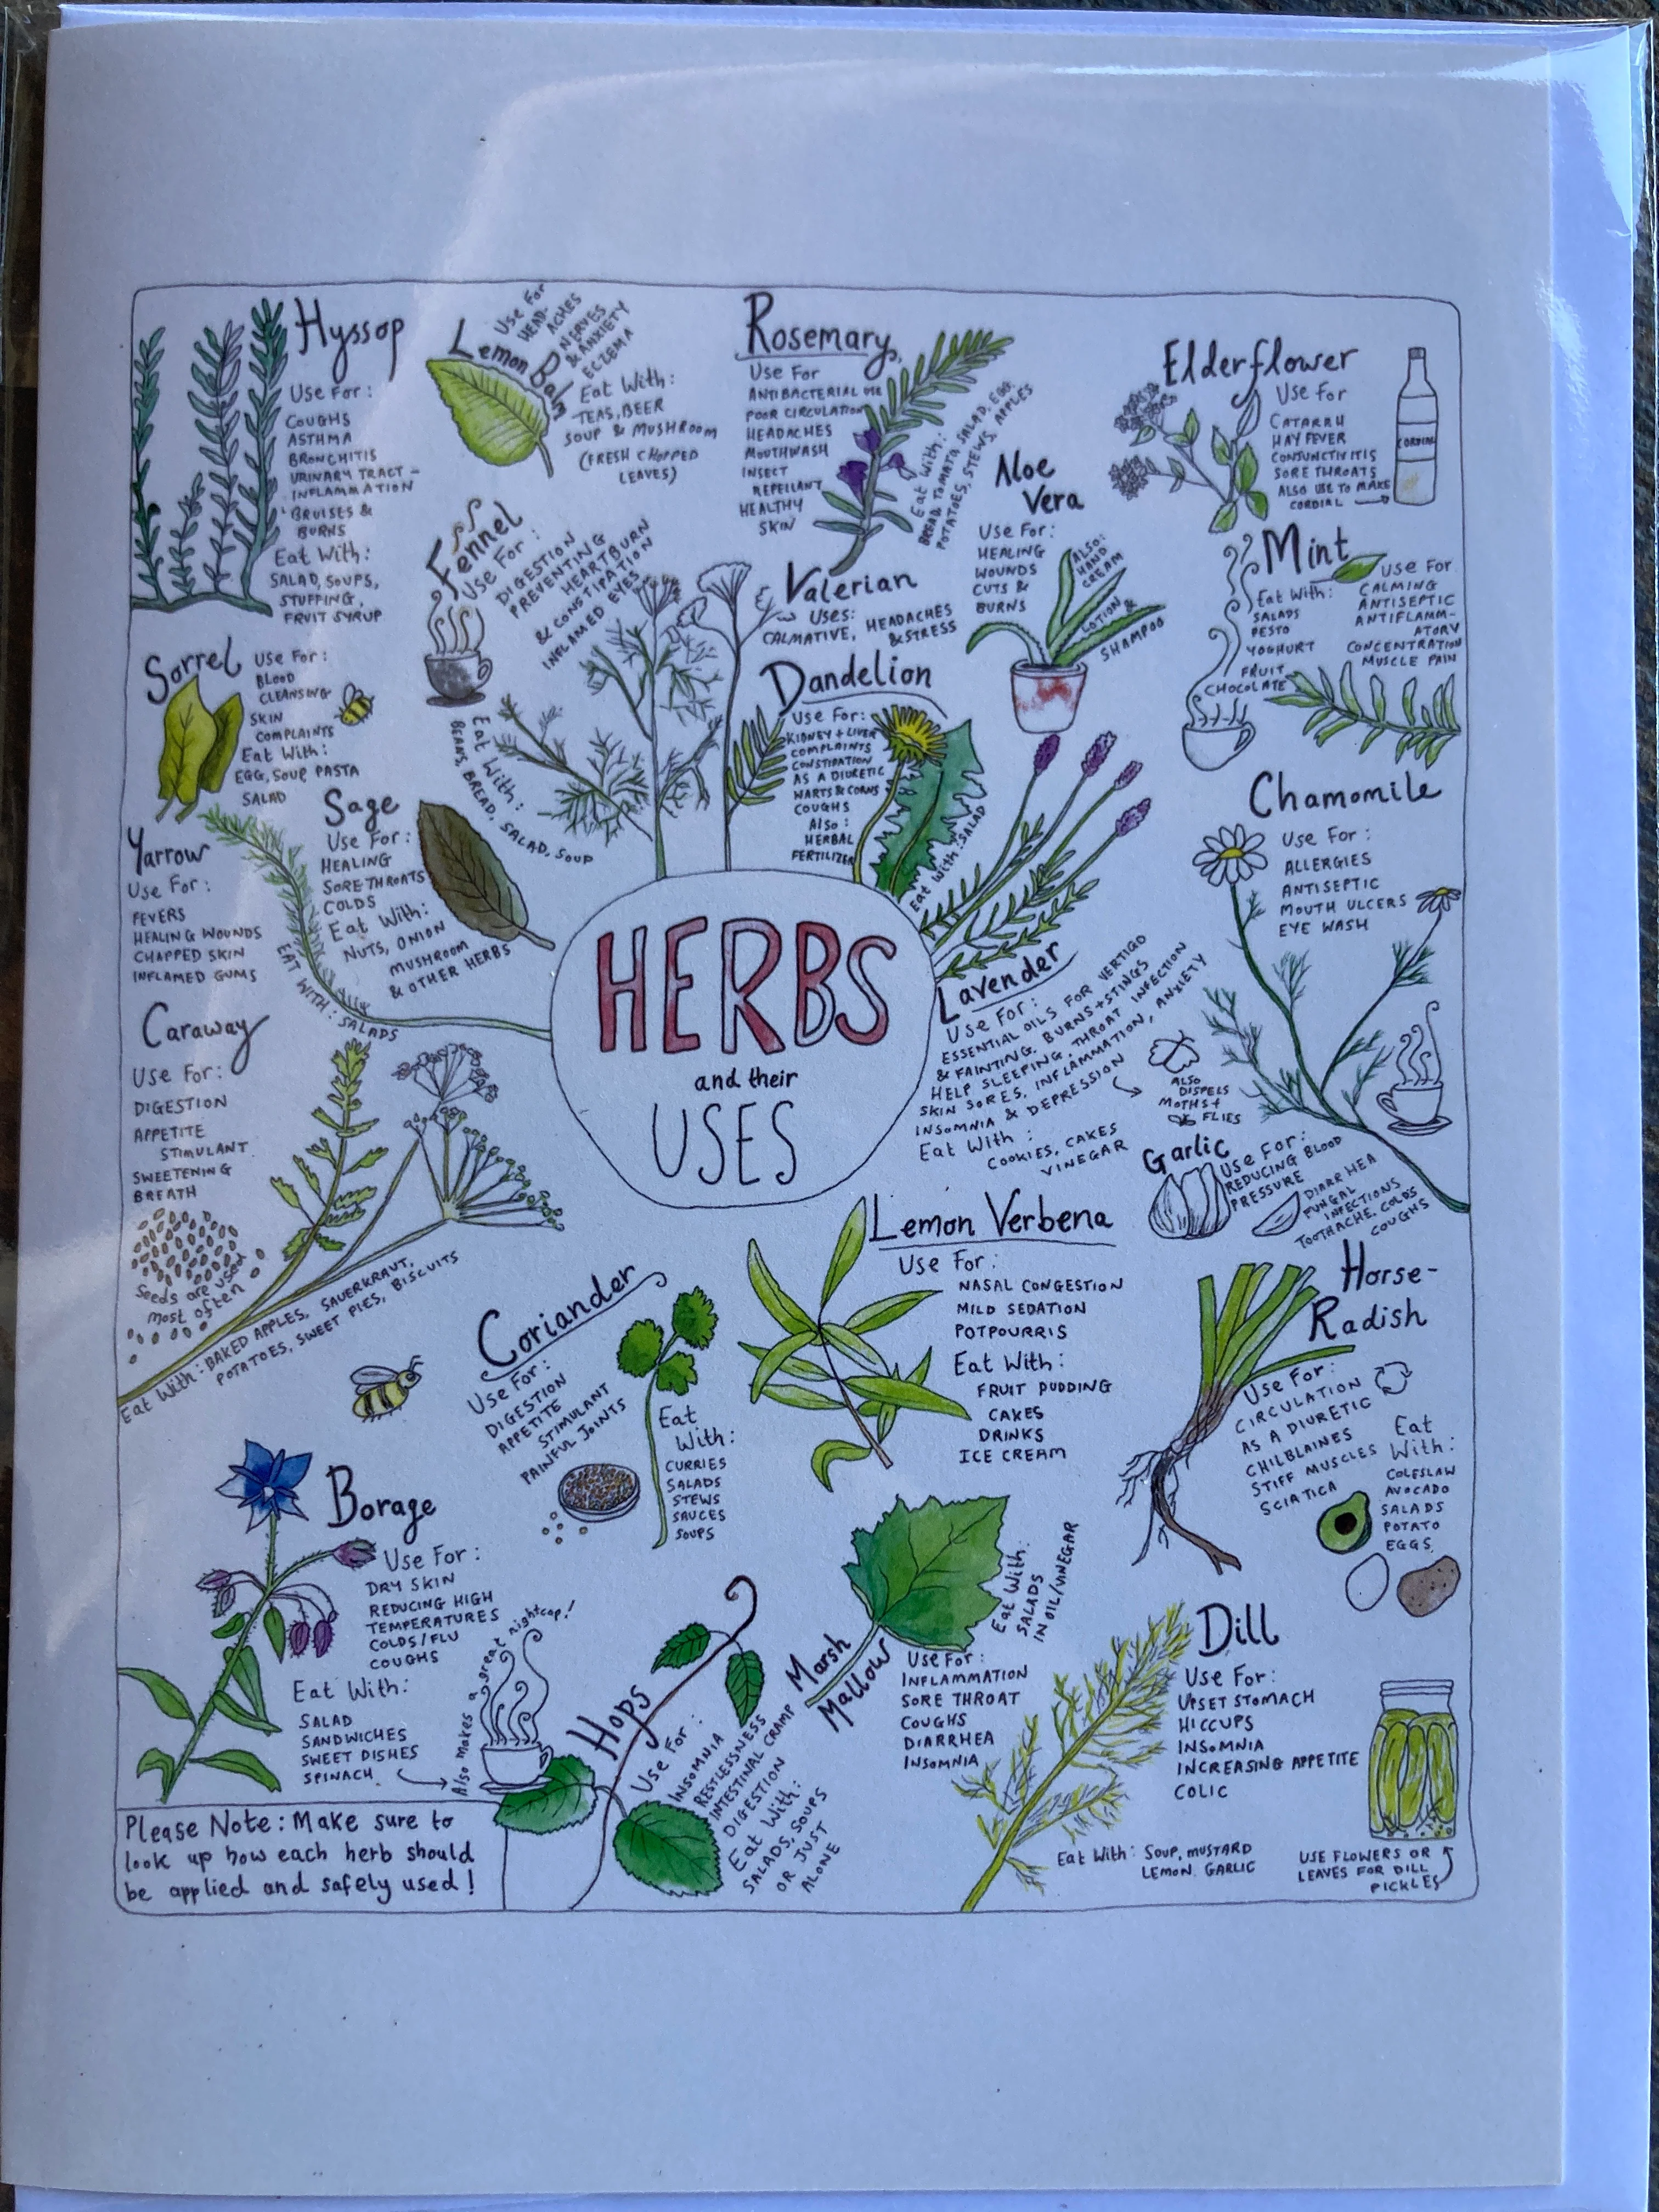 Hyssop
Use For:
COUGHS
ASTHMA
BRONCHITIS
URINARY TRACT -
INFLAMMATION
BRUISES &
BURNS
Eat With:
SALAD, SOUPS,
STUFFING,
FRUIT SYRUP
Lemon Balm
Use For
HEAD-
ACHES
NERVES
& ANXIETY
ECZEMA
Eat With:
TEAS, BEER
SOUP & MUSHROOM
(FRESH CHOPPED
LEAVES)
Rosemary
Use For
ANTIBACTERIAL USE
POOR CIRCULATION
HEADACHES
MOUTHWASH
INSECT
REPELLANT
HEALTHY
SKIN
Eat With:
BREAD, TOMATO, SALAD, EGG,
POTATOES, STEWS, APPLES
Elderflower
Use For
CATARRH
HAYFEVER
CONJUNCTIVITIS
SORE THROATS
ALSO USE TO MAKE
CORDIAL
CORDIAL
Fennel
Use For:
DIGESTION
PREVENTING
HEARTBURN
& CONSTIPATION
INFLAMED EYES
Eat With:
BEANS, BREAD, SALAD, SOUP
Valerian
Uses:
CALMATIVE, HEADACHES
& STRESS
Aloe
Vera
Use For:
HEALING
WOUNDS
CUTS &
BURNS
ALSO:
HAND
CREAM
LOTION &
SHAMPOO
Mint
Use For
CALMING
ANTISEPTIC
ANTIFLAMM-
ATORY
CONCENTRATION
MUSCLE PAIN
Eat With:
SALADS
PESTO
YOGHURT
FRUIT
CHOCOLATE
Sorrel
Use For:
BLOOD
CLEANSING
SKIN
COMPLAINTS
Eat With:
EGG, SOUP PASTA
SALAD
Dandelion
Use For:
KIDNEY + LIVER
COMPLAINTS
CONSTIPATION
AS A DIURETIC
WARTS & CORNS
COUGHS
Also:
HERBAL
FERTILIZER
Eat With: SALAD
Sage
Use For:
HEALING
SORE THROATS
COLDS
Eat With:
NUTS, ONION
MUSHROOM
& OTHER HERBS
Yarrow
Use For:
FEVERS
HEALING WOUNDS
CHAPPED SKIN
INFLAMED GUMS
EAT WITH: SALADS
Chamomile
Use For:
ALLERGIES
ANTISEPTIC
MOUTH ULCERS
EYE WASH
HERBS
and their
USES
Lavender
Use For:
ESSENTIAL OILS FOR VERTIGO
& FAINTING, BURNS + STINGS
HELP SLEEPING, THROAT INFECTION
SKIN SORES, INFLAMMATION, ANXIETY
INSOMNIA & DEPRESSION
ALSO
DISPELS
MOTHS +
FLIES
Eat With:
COOKIES, CAKES
VINEGAR
Caraway
Use For:
DIGESTION
APPETITE
STIMULANT
SWEETENING
BREATH
Seeds are used
most often
Eat With: BAKED APPLES, SAUERKRAUT,
POTATOES, SWEET PIES, BISCUITS
Garlic
Use For:
REDUCING BLOOD
PRESSURE
DIARRHEA
FUNGAL
INFECTIONS
TOOTHACHE, COLDS
COUGHS
Lemon Verbena
Use For:
NASAL CONGESTION
MILD SEDATION
POTPOURRIS
Eat With:
FRUIT PUDDING
CAKES
DRINKS
ICE CREAM
Coriander
Use For:
DIGESTION
APPETITE
STIMULANT
PAINFUL JOINTS
Eat
With:
CURRIES
SALADS
STEWS
SAUCES
SOUPS
Horse-
Radish
Use For:
CIRCULATION
AS A DIURETIC
CHILBLAINES
STIFF MUSCLES
SCIATICA
Eat
With:
COLESLAW
AVOCADO
SALADS
POTATO
EGGS
Borage
Use For:
DRY SKIN
REDUCING HIGH
TEMPERATURES
COLDS/FLU
COUGHS
Eat With:
SALAD
SANDWICHES
SWEET DISHES
SPINACH
Also makes a great nightcap!
Hops
Use For:
INSOMNIA
RESTLESSNESS
INTESTINAL CRAMP
DIGESTION
Eat With:
SALADS, SOUPS
OR JUST
ALONE
Marsh
Mallow
Eat With:
SALADS
IN OIL/VINEGAR
Use For:
INFLAMMATION
SORE THROAT
COUGHS
DIARRHEA
INSOMNIA
Dill
Use For:
UPSET STOMACH
HICCUPS
INSOMNIA
INCREASING APPETITE
COLIC
Eat With: SOUP, MUSTARD
LEMON, GARLIC
USE FLOWERS OR
LEAVES FOR DILL
PICKLES
Please Note: Make sure to
look up how each herb should
be applied and safely used!